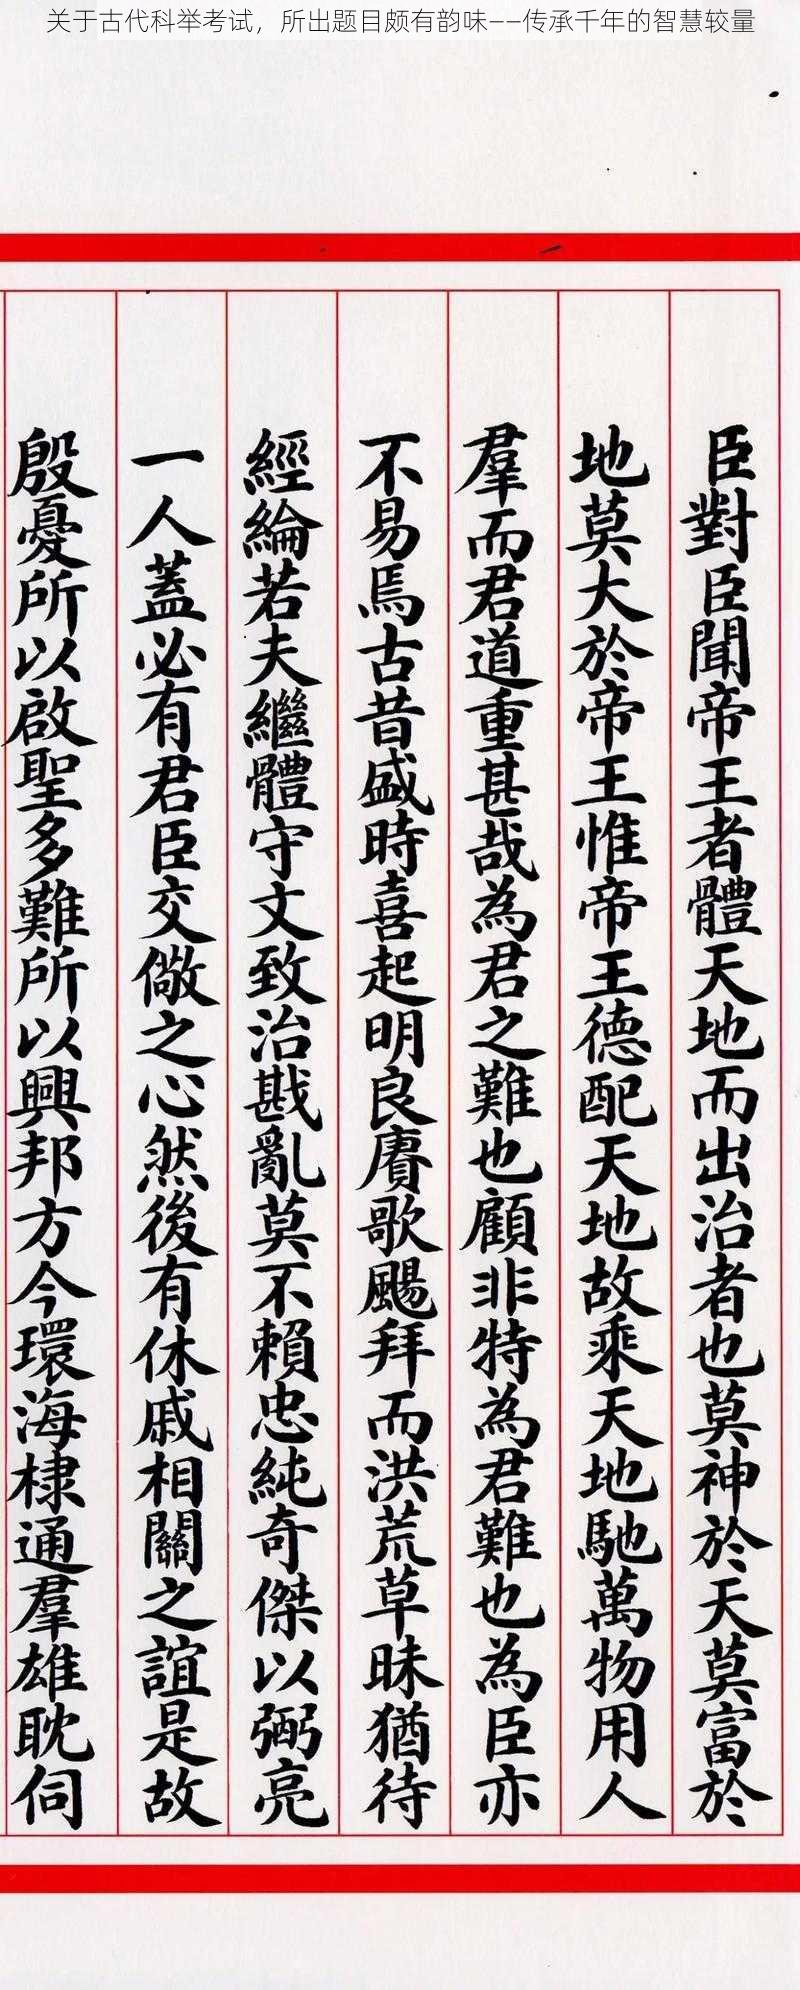 关于古代科举考试，所出题目颇有韵味——传承千年的智慧较量
臣對臣聞帝王者體天地而出治者也莫神於天莫富於
地莫大於帝王惟帝王德配天地故乘天地馳萬物用人
羣而君道重甚哉為君之難也顧非特為君難也為臣亦
不易焉古昔盛時喜起明良賡歌颺拜而洪荒草昧猶待
經綸若夫繼體守文致治戡亂莫不賴忠純奇傑以弼亮
一人蓋必有君臣交儆之心然後有休戚相關之誼是故
殷憂所以啟聖多難所以興邦方今環海棣通羣雄耽伺